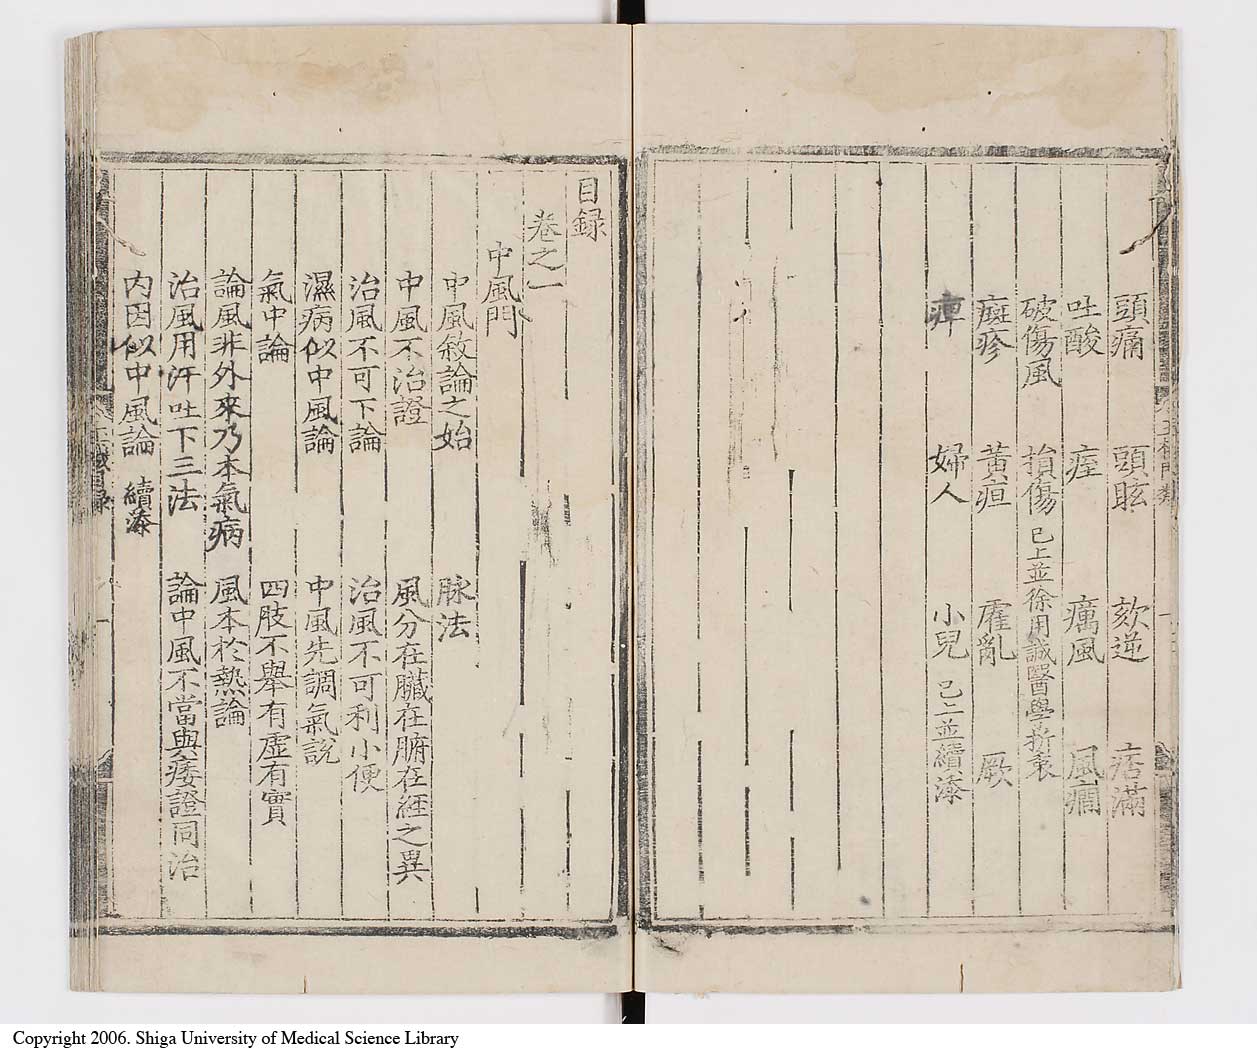 頭痛 頭眩 欬逆 痞滿
吐酸 痓 癘風 風癎
破傷風 損傷 已上並徐用誠醫學折衷
癍疹 黃疸 霍亂 厥
痺 婦人 小兒 已上並續添
目録
卷之一
中風門
中風敘論之始 脉法
中風不治證 風分在臟在腑在經之異
治風不可下論 治風不可利小便
濕病似中風論 中風先調氣說
氣中論 四肢不舉有虛有實
論風非外來乃本氣病 風本於熱論
治風用汗吐下三法 論中風不當與痿證同治
內因似中風論 續添
Copyright 2006. Shiga University of Medical Science Library